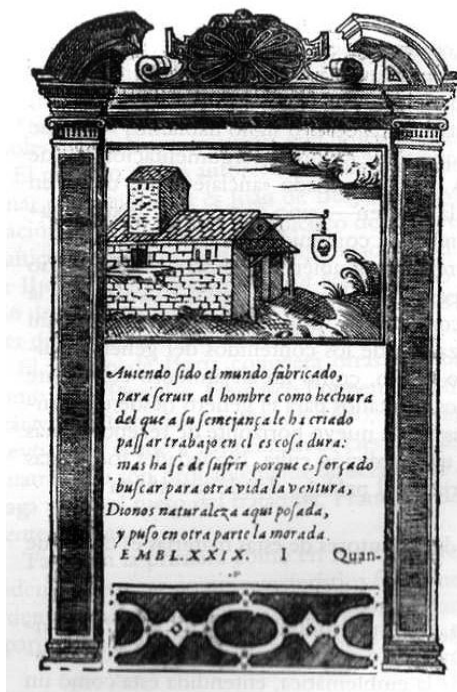 Auiendo sido el mundo fabricado,
para seruir al hombre como hechura
del que a su semejança le ha criado
passar trabajo en el es cosa dura:
mas ha se de sufrir porque es forçado
buscar para otra vida la ventura,
Dionos naturaleza aqui posada,
y puso en otra parte la morada.
EMBL. XXIX. 1 Quan-